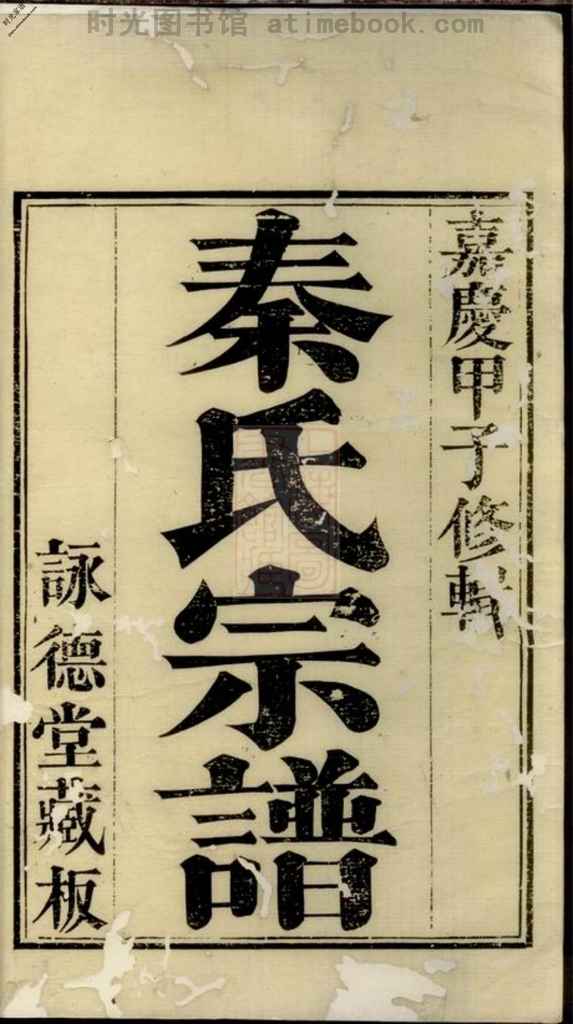 时光图书馆 atimebook.com
嘉慶甲子修輯
秦氏宗譜
詠德堂藏板